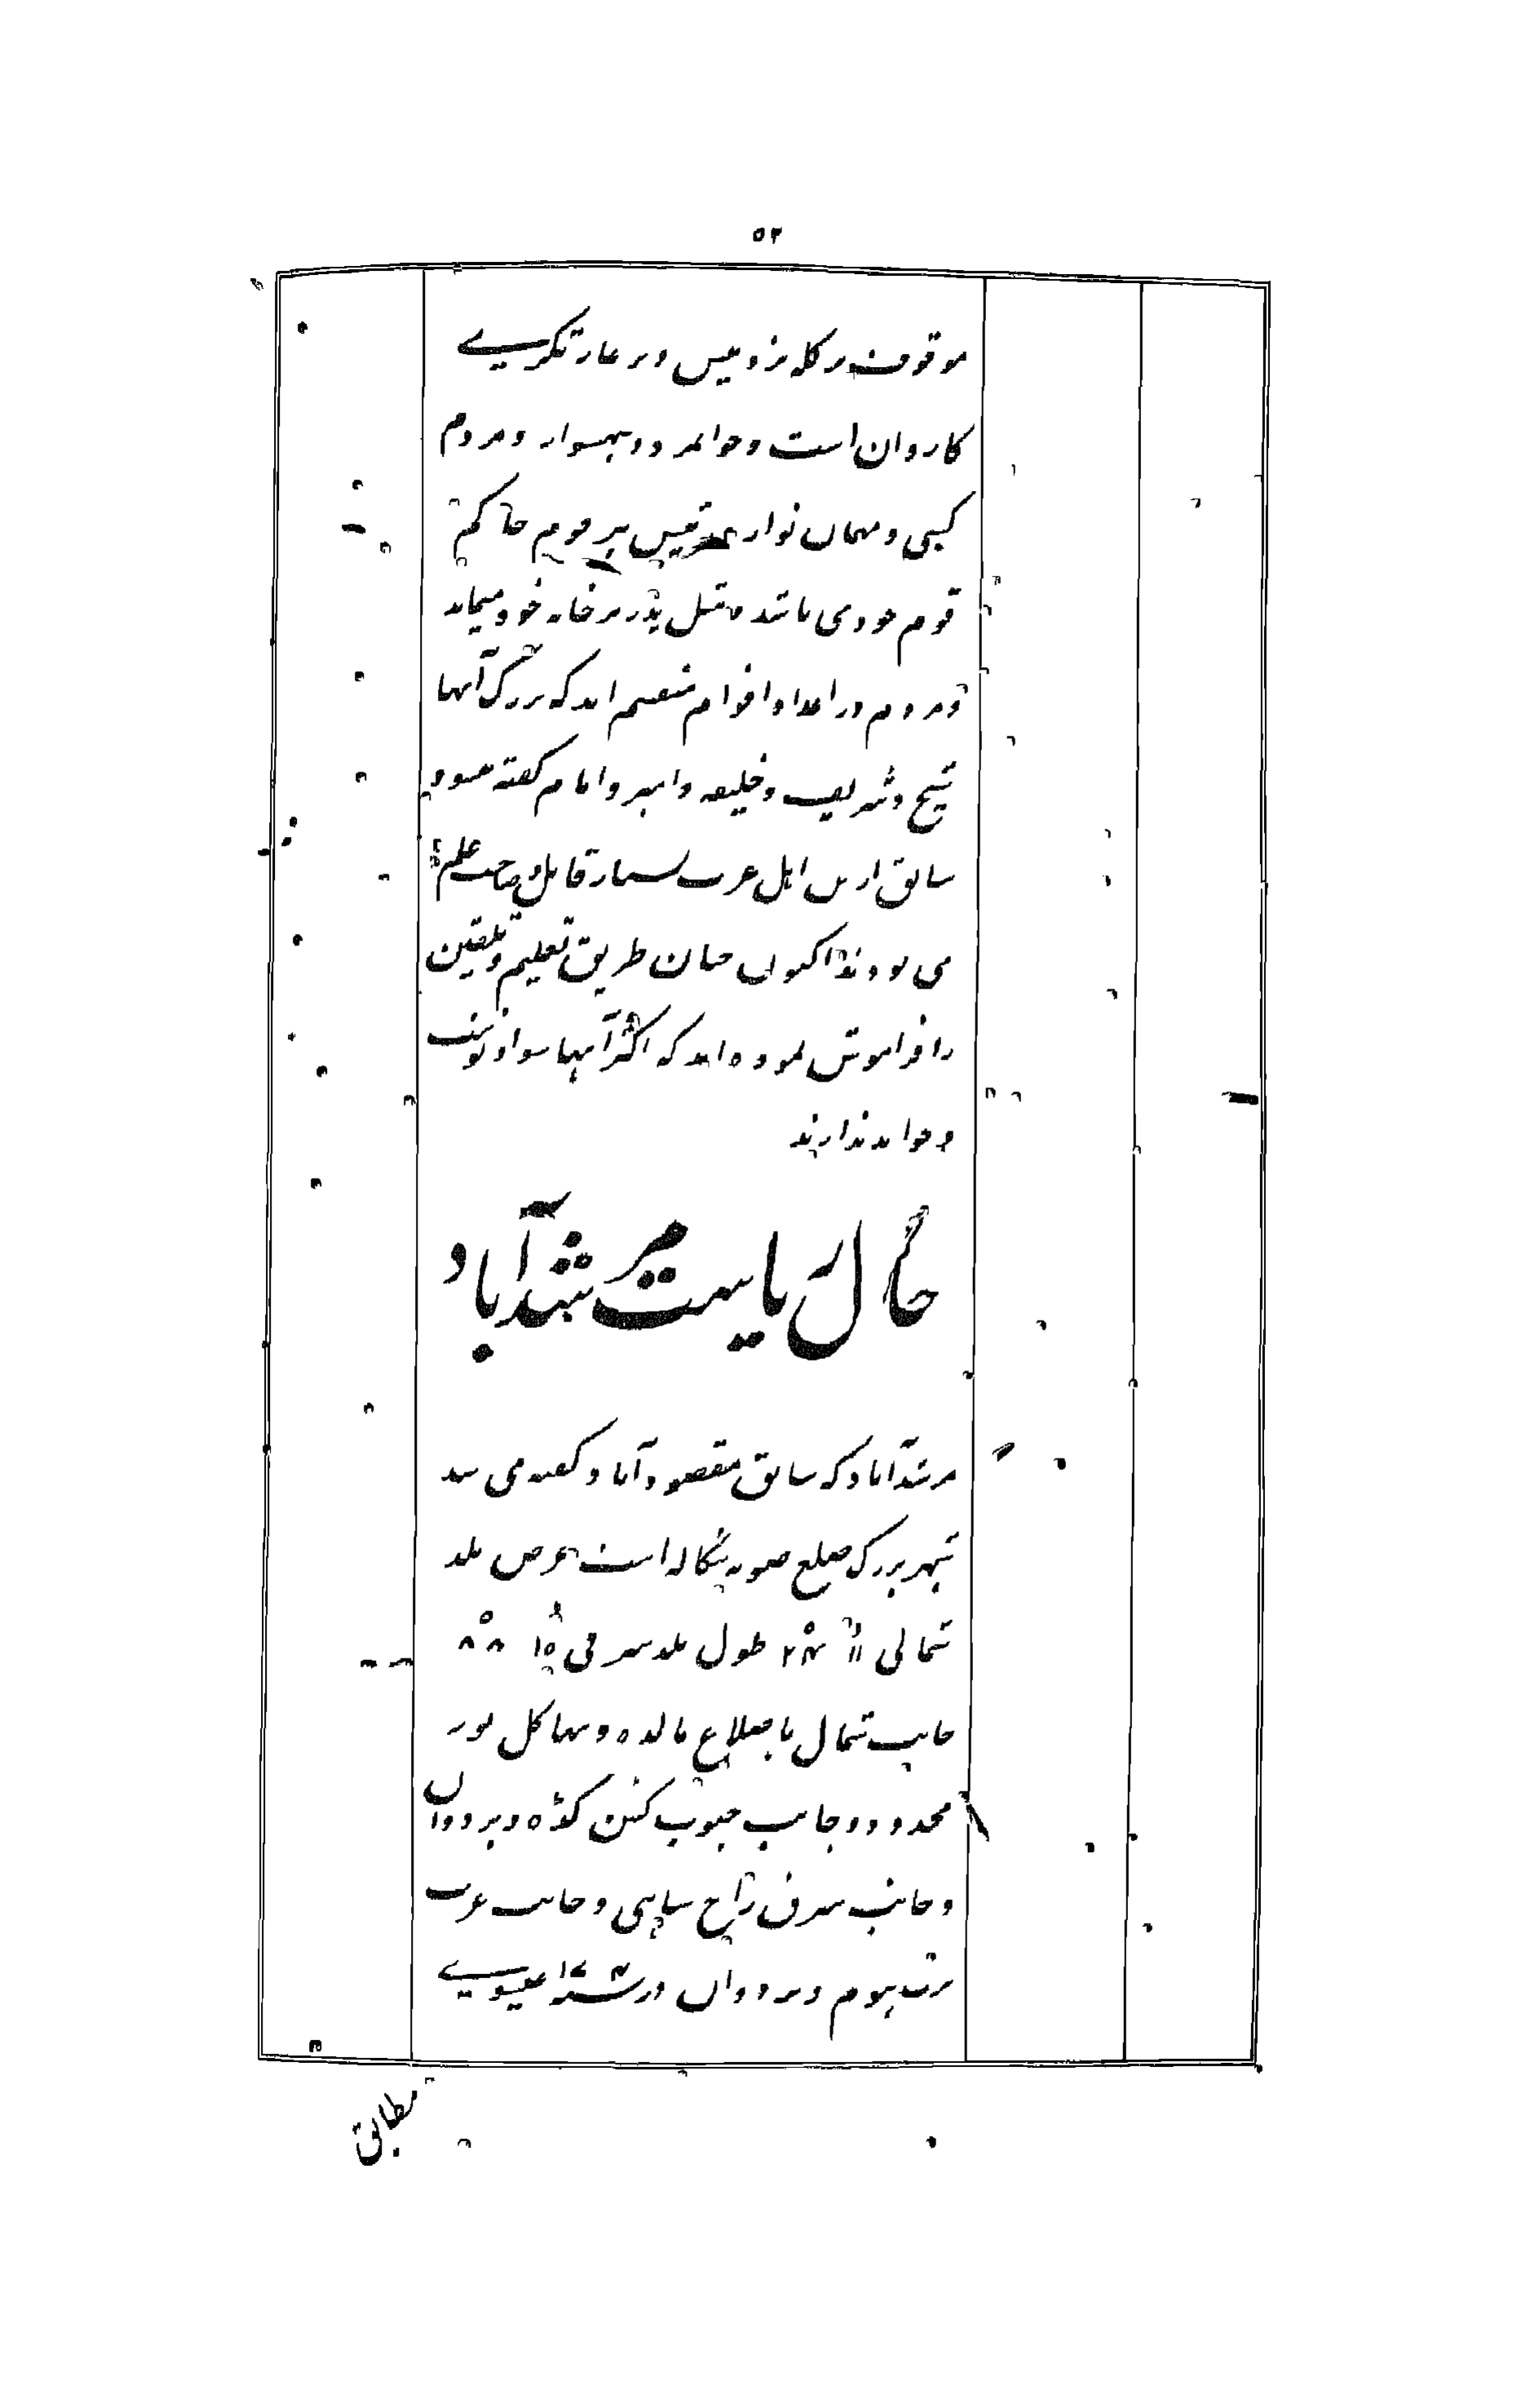 ۵۲
موقوف بر کله بز و میش و بر غارتگریے
کاروان است و جوانمرد و شهسوار و مردم
کسبی و مهمان نواز رئیس هر قوم حاکم
قوم خود می باشد مثل پدر بر خانه خود میماند
و مردم در اعداد اقوام منقسم اند که بزرگ آنها
شیخ و شریف و خلیفه و امیر و امام گفته میشود
سابق ازین اهل عرب بسیار قابل و صاحب علم
می بودند اکنون چنان طریق تعلیم و تلقین
را فراموش نموده اند که اکثر آنها سواد نوشت
و خواند ندارند
حال ریاست مرشدآباد
مرشدآباد که سابق مقصودآباد گفته می شد
شهر بزرگ ضلع صوبه بنگاله است عرض بلد
شمالی ۱۱ ۲۴ طول بلد شرقی ۱۵ ۸۸
جانب شمال باضلاع مالده و بهاگل پور
محدود و جانب جنوب کشن گڈه و بردوان
و جانب شرق راج ساہی و جانب غرب
بیربهوم و بردوان در سنه ۱۷۰۴ عیسویے
مطابق